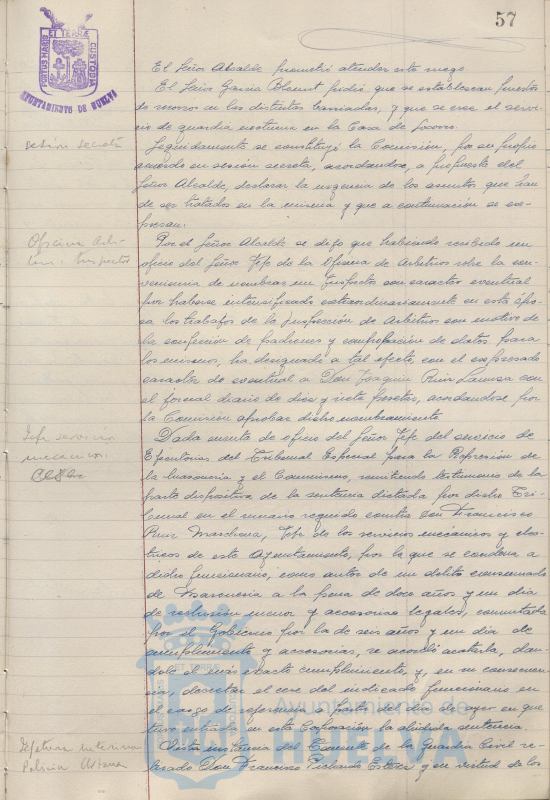 57
PORTUS MARIS ET TERRAE CUSTODIA
AYUNTAMIENTO DE HUELVA
El Señor Alcalde prometió atender este ruego.
El Señor Garcia pidió, que se establezcan puestos
de socorro en los distintos barriadas, y que se cree el servi-
cio de guardia nocturna en la Casa de Socorro.
Sesión secreta
Seguidamente se constituyó la Comisión, por su propio
acuerdo en sesión secreta, acordandose, a propuesta del
Señor Alcalde, declarar la urgencia de los asuntos que han
de ser tratados en la misma y que a continuación se ex-
presan:
Oficina Arbi-
trios: Inspector
Por el Señor Alcalde se dijo que habiendo recibido un
oficio del Señor Jefe de la Oficina de Arbitrios sobre la con-
veniencia de nombrar un Inspector con caracter eventual
por haberse intensificado extraordinariamente en esta épo-
ca los trabajos de la Inspección de Arbitrios con motivo de
la confección de padrones y comprobación de datos para
los mismos, ha designado a tal efecto, con el expresado
caracter de eventual a Don Joaquin Ruiz
el jornal diario de diez y siete pesetas, acordandose por
la Comisión aprobar dicho nombramiento.
Jefe servicios
mecanicos.
Cese
Dada cuenta de oficio del Señor Jefe del servicio de
Ejecutorias del Tribunal Especial para la Represión de
la Masonería y el Comunismo, remitiendo testimonio de la
parte dispositiva de la sentencia dictada por dicho Tri-
bunal en el sumario seguido contra Don Francisco
Ruiz Marchena, Jefe de los servicios mecanicos y elec-
tricos de este Ayuntamiento, por la que se condena a
dicho funcionario, como autor de un delito consumado
de Masonería a la pena de doce años y un día
de reclusión menor y accesorias legales, conmutada
por el Gobierno por la de seis años y un día de
cumplimiento y accesorias, se acordó acatarla, dan-
dole el más exacto cumplimiento, y, en su consecuen-
cia, decretar el cese del indicado funcionario en
el cargo de referencia a partir del día de ayer en que
tuvo entrada en esta Corporación la aludida sentencia.
Jefatura interina
Policia Urbana
Vista instancia del Comandante de la Guardia Civil re-
tirado Don Francisco Pichardo y en virtud de los
Ayuntamiento de
HUELVA